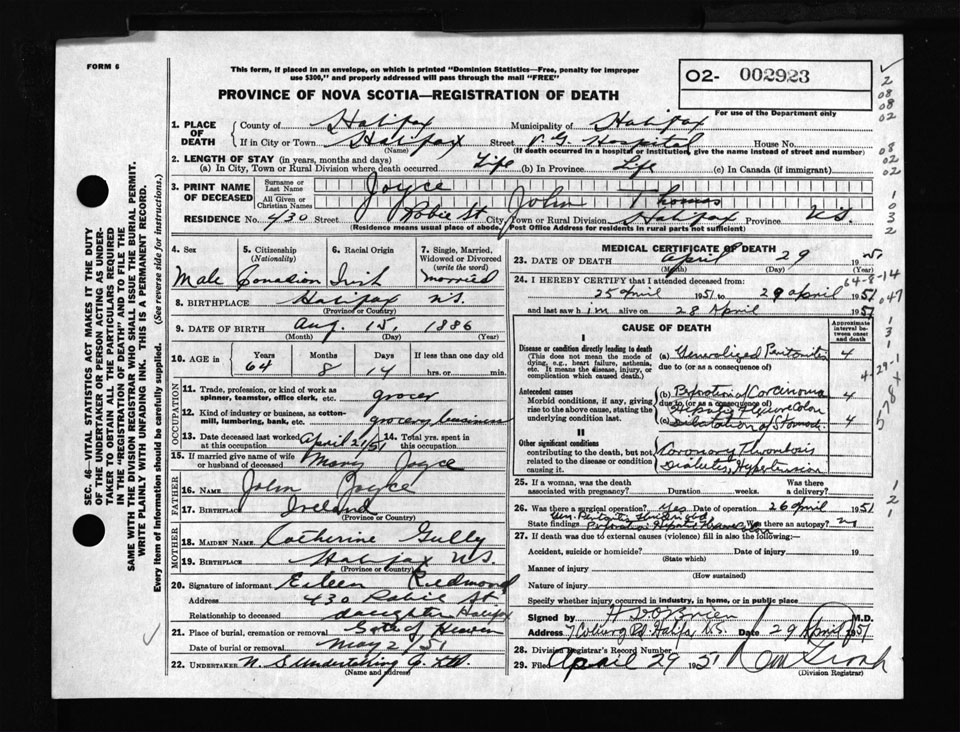 FORM 6
This form, if placed in an envelope, on which is printed "Dominion Statistics—Free, penalty for improper
use $300," and properly addressed will pass through the mail "FREE"
PROVINCE OF NOVA SCOTIA—REGISTRATION OF DEATH
O2- 002923
For use of the Department only
1. PLACE OF DEATH
County of Halifax Municipality of Halifax
If in City or Town Halifax Street V G Hospital House No.
(Name) (If death occurred in a hospital or institution, give the name instead of street and number)
2. LENGTH OF STAY (in years, months and days)
(a) In City, Town or Rural Division where death occurred Life (b) In Province Life (c) In Canada (if immigrant)
3. PRINT NAME OF DECEASED
Surname or Last Name Joyce
All Given or Christian Names John Thomas
RESIDENCE No. 430 Street Robie St City, Town or Rural Division Halifax Province N.S.
(Residence means usual place of abode, Post Office Address for residents in rural parts not sufficient)
4. Sex 5. Citizenship (Nationality) 6. Racial Origin 7. Single, Married, Widowed or Divorced (write the word)
Male Canadian Irish married
8. BIRTHPLACE Halifax N.S.
(Province or Country)
9. DATE OF BIRTH Aug. 15, 1886
(Month) (Day) (Year)
10. AGE in Years Months Days If less than one day old
64 8 14 hrs. or min.
OCCUPATION
11. Trade, profession, or kind of work as spinner, teamster, office clerk, etc. grocer
12. Kind of industry or business, as cotton-mill, lumbering, bank, etc. grocery business
13. Date deceased last worked at this occupation April 21/51 14. Total yrs. spent in this occupation
15. If married give name of wife or husband of deceased Mary Joyce
FATHER
16. NAME John Joyce
17. BIRTHPLACE Ireland
(Province or Country)
MOTHER
18. MAIDEN NAME Catherine Gully
19. BIRTHPLACE Halifax N.S.
(Province or Country)
20. Signature of informant Eileen Redmond
Address 430 Robie St Halifax
Relationship to deceased daughter
21. Place of burial, cremation or removal Gate of Heaven
Date of burial or removal May 2/51
22. UNDERTAKER N. S Undertaking Co. Ltd.
(Name and address)
MEDICAL CERTIFICATE OF DEATH
23. DATE OF DEATH April 29 1951
(Month) (Day) (Year)
24. I HEREBY CERTIFY that I attended deceased from:
25 April 1951 to 29 April 1951
and last saw him alive on 28 April 1951
64-8-14
CAUSE OF DEATH
Approximate interval between onset and death
I
Disease or condition directly leading to death
(This does not mean the mode of dying, e.g., heart failure, asthenia, etc. It means the disease, injury, or complication which caused death.)
(a) Generalized Peritonitis 4
due to (or as a consequence of)
Antecedent causes
Morbid conditions, if any, giving rise to the above cause, stating the underlying condition last.
(b) Perforation of Carcinoma 4
due to (or as a consequence of)
Hepatic Flexure Colon
(c) Dilatation of Stomach 4
II
Other significant conditions
contributing to the death, but not related to the disease or condition causing it.
Coronary Thrombosis
Diabetes, Hypertension
25. If a woman, was the death associated with pregnancy? Duration weeks. Was there a delivery?
26. Was there a surgical operation? Yes Date of operation 26 April 1951
State findings Gen. Peritonitis
Perforation Hepatic Flexure Colon Was there an autopsy? no
27. If death was due to external causes (violence) fill in also the following:—
Accident, suicide or homicide? Date of injury 19
(State which)
Manner of injury
(How sustained)
Nature of injury
Specify whether injury occurred in industry, in home, or in public place
Signed by H D O'Brien M.D.
Address 7 Coburg Rd. Halifax, N.S. Date 29 April 1951
28. Division Registrar's Record Number
29. Filed April 29 1951
(Division Registrar)
SEC. 46 VITAL STATISTICS ACT MAKES IT THE DUTY
OF THE UNDERTAKER OR PERSON ACTING AS UNDER-
TAKER TO OBTAIN ALL THE PARTICULARS REQUIRED
IN THE "REGISTRATION OF DEATH" AND TO FILE THE
SAME WITH THE DIVISION REGISTRAR WHO SHALL ISSUE THE BURIAL PERMIT.
WRITE PLAINLY WITH UNFADING INK. THIS IS A PERMANENT RECORD.
Every item of Information should be carefully supplied. (See reverse side for instructions.)
2
08
08
02
08
02
02
1
03
2
047
1
3
1
4-29-1
578x
5
1
2
1